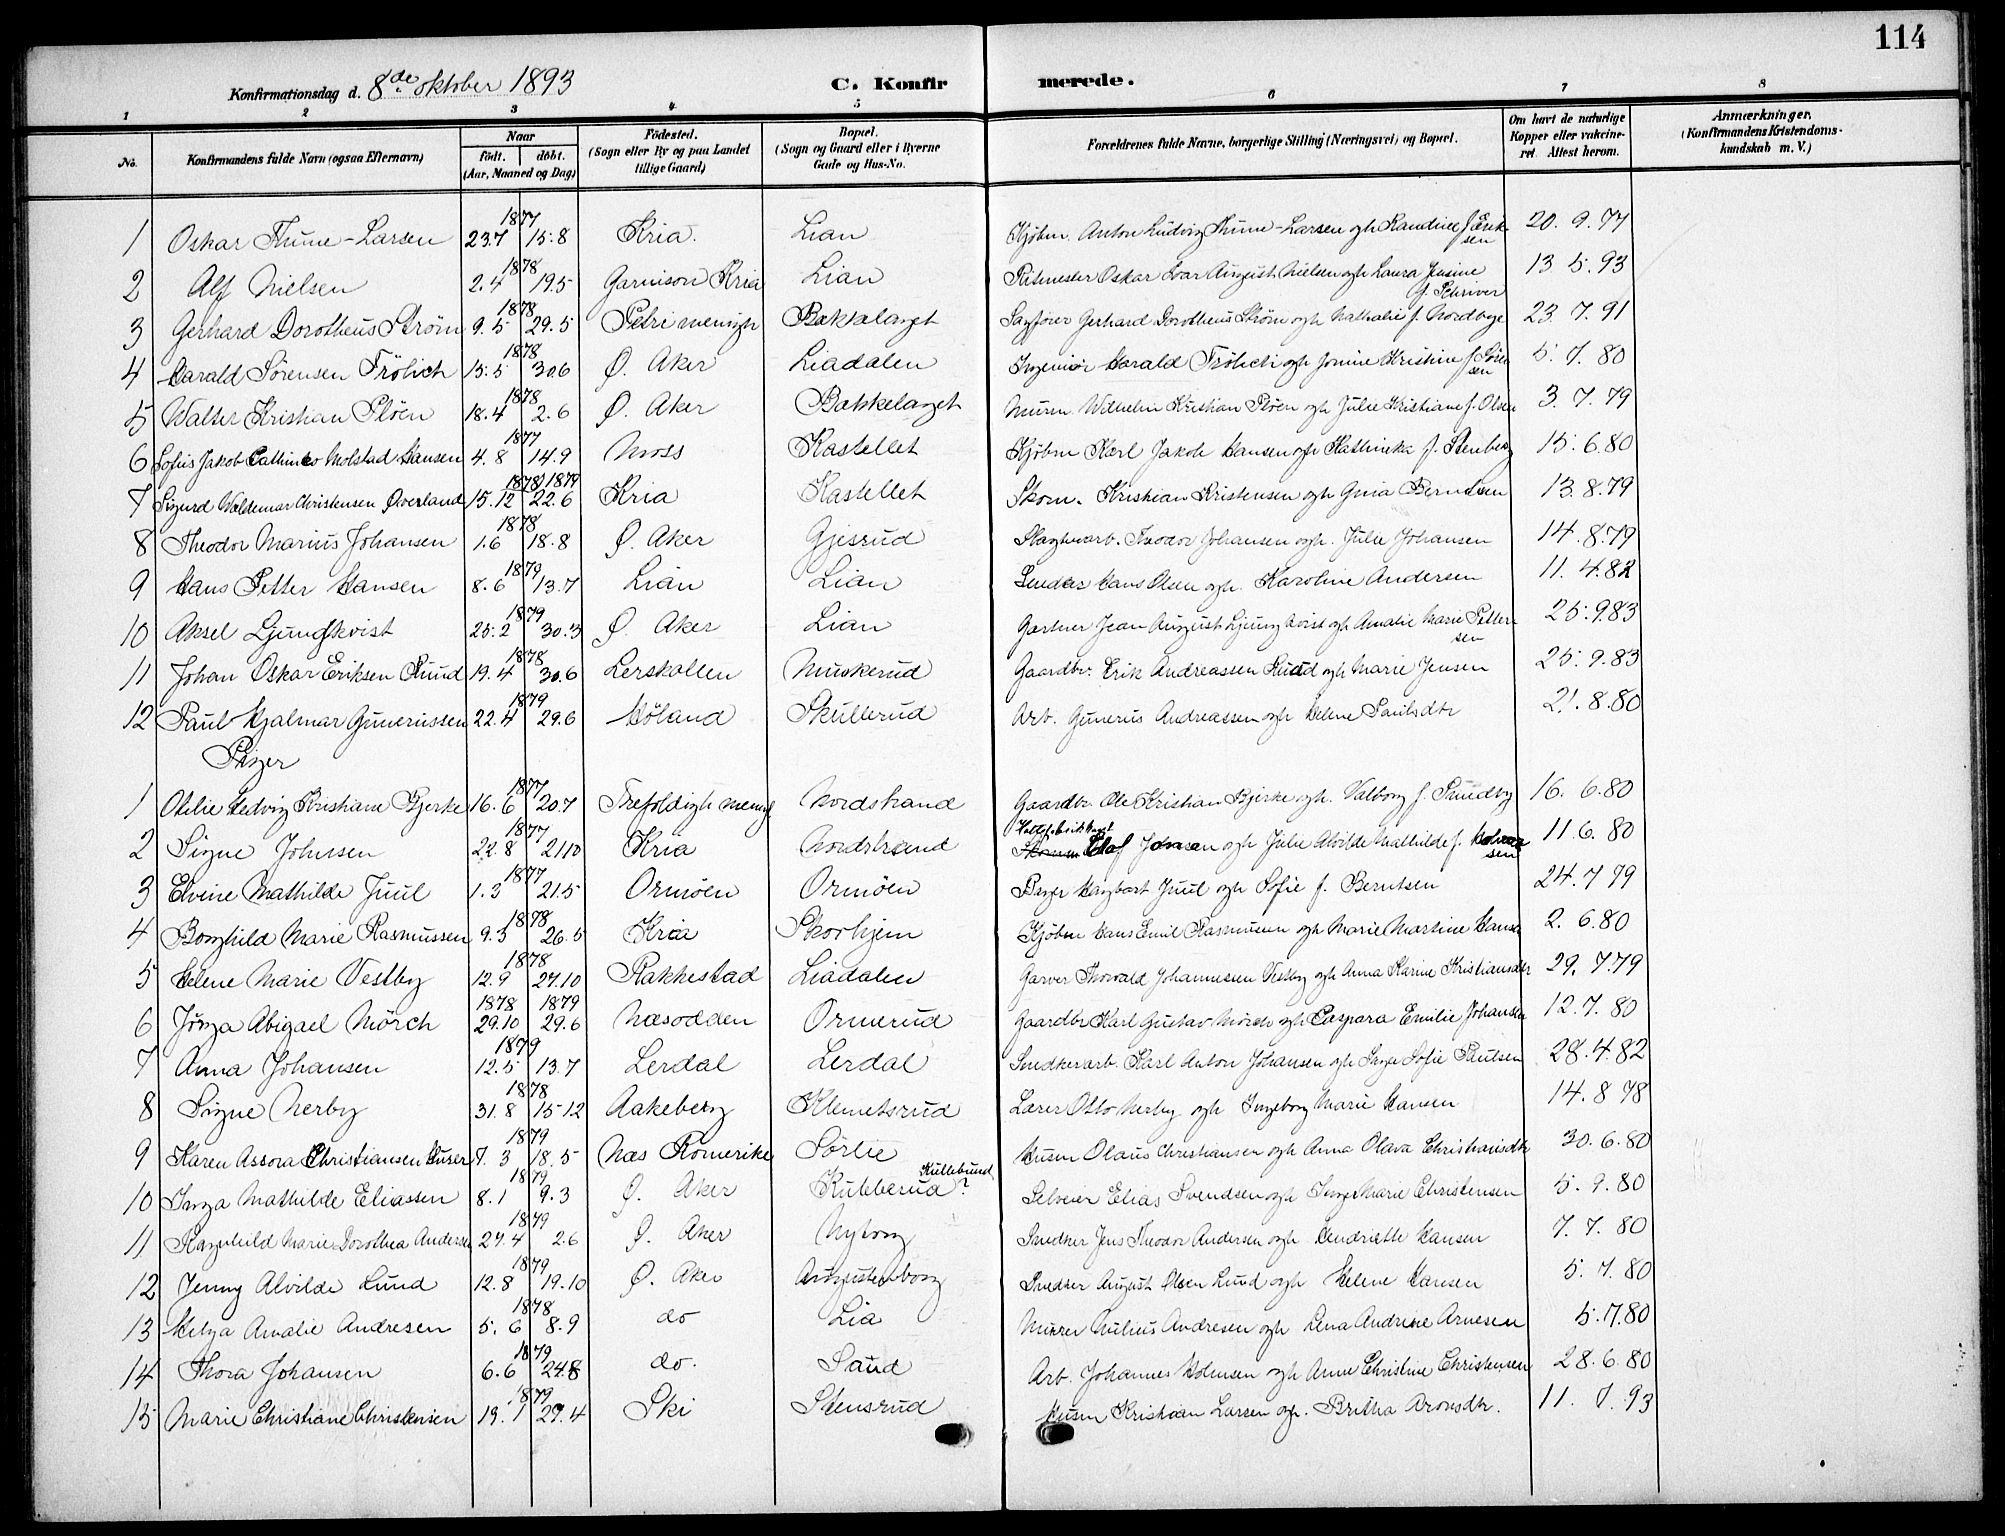 114
Konfirmationsdag d. 8de oktober 1893 C. Konfirmerede.
1 2 3 4 5 6 7 8
No. Konfirmandens fulde Navn (ogsaa Efternavn) Naar født. døbt. (Aar, Maaned og Dag) Fødested. (Sogn eller By og paa Landet tillige Gaard) Bopæl. (Sogn og Gaard eller i Byerne Gade og Hus-No. Forældrenes fulde Navne, borgerlige Stilling (Næringsvei) og Bopæl. Om havt de naturlige Kopper eller vakcineret. Attest herom. Anmærkninger. (Konfirmandens Kristendomskundskab m. V.)
1 Oskar Thune-Larsen 1877 23.7 15.8 Kria. Lian Kjøbm. Anton Ludvig Thune-Larsen og h Randine f. Eriksen 20.9.77
2 Alf Nielsen 1878 2.4 19.5 Garnison Kria Lian Ritmester Oskar Ivar August Nielsen og h Laura Jensine f. Schriver 13 5.93
3 Gerhard Dorotheus Strøm 1878 9.5 29.5 Petri menigh Bækkelaget Sagfører Gerhard Dorotheus Strøm og h Nathalie f. Nordbye 23.7.91
4 Harald Sørensen Frölich 1878 15.5 30.6 Ø. Aker Liadalen Ingeniør Harald Frölich og h Jonine Kristine f. Sørensen 5.7.80
5 Walter Kristian Pløen 1878 18.4 2.6 Ø. Aker Bækkelaget Murm. Wilhelm Kristian Pløen og h Julie Kristiane f. Olsen 3.7.79
6 Sofus Jakob Molstad Hansen 1877 4.8 14.9 Moss Kastellet Kjøbm Karl Jakob Hansen og h Kathinka f. Stenberg 15.6.80
7 Sigurd Valdemar Christensen Øverland 1878 1879 15.12 22.6 Kria Kastellet Skom. Kristian Kristensen og h Gina Berntsen 13.8.79
8 Theodor Marius Johansen 1878 1.6 18.8 Ø. Aker Gjesrud Slagterarb. Theodor Johansen og h. Julie Johansen 14.8.79
9 Hans Petter Hansen 1879 8.6 13.7 Lian Lian Snedker Hans Olsen og h. Karoline Andersen 11.4.82
10 Aksel Ljungkvist 1879 25.2 30.3 Ø. Aker Lian Gartner Jean August Ljungkvist og h Amalie Marie Pettersen 25.9.83
11 Johan Oskar Eriksen Ruud 1878 19.4 30.6 Lerskallen Munkerud Gaardbr. Erik Andreassen Ruud og h Marie Jensen 25.9.83
12 Paul Hjalmar Gunerussen 1879 22.4 29.6 Høland Skullerud Arb. Gunerus Andreassen og h Helene Paulsdtr 21.8.80
Piger
1 Otilie Hedvig Kristiane Bjerke 1877 16.6 20.7 Trefoldigh menigh Nordstrand Gaardbr. Ole Kristian Bjerke og h. Valborg f. Smedby 16.6.80
2 Signe Johnsen 1877 22.8 21.10 Kria Nordstrand Olaf Jonsen og h Julie Alvilde Mathilde f. Halvorsen 11.6.80
3 Elvine Mathilde Juul 1877 1.3 21.5 Ormöen Ormöen Bager Hagbart Juul og h Sofie f. Berntsen 24.7 79
4 Borghild Marie Rasmussen 1878 9.3 26.5 Kria Skovhjem Kjøbm Hans Emil Rasmussen og h Marie Martine Hansen 2.6.80
5 Helene Marie Vestby 1878 12.9 27.10 Rakkestad Liadalen Garver Thorvald Johannesen Vestby og h Anna Karine Kristiansdtr 29.7.79
6 Inga Abigael Mörch 1878 1879 29.10 29.6 Næsodden Ormerud Gaardbr Karl Gustav Mörch og h Caspara Emilie Johansen 12.7.80
7 Anna Johansen 1879 12.5 13.7 Lerdal Lerdal Snedkerarb. Karl Anton Johansen og h Inga Sofie Paulsen 28.4.82
8 Signe Nerby 1878 31.8 15-12 Aakeberg Klemetsrud Lærer Otto Nerby og h Ingeborg Marie Hansen 14.8 78
9 Karen Assora Christiansen 1879 7.3 18.5 Næs Romerike Sörlie Husm Olaus Christiansen og h Anna Olava Christiansdtr 30.6.80
10 Inga Mathilde Eliassen 1879 8.1 9.3 Ø. Aker Kubberud? Kullebund Selveier Elias Svendsen og h Inger Marie Christensen 5.9.80
11 Ragnhild Marie Dorothea Andersen 1879 27.4 2.6 Ø. Aker Nyborg Snedker Jens Theodor Andersen og h Hendriette Hansen 7.7.80
12 Jenny Alvilde Lund 1879 12.8 19.10 Ø. Aker Augustenborg Snedker August Olsen Lund og h Helene Hansen 5.7.80
13 Helga Amalie Andresen 1878 5.6 8.9 do Lia Murer Julius Andresen og h Lena Andrine Arnesen 5.7.80
14 Thora Johansen 1879 6.6 24.8 do. Sand Arb. Johannes Holmsen og h Anne Christine Christensen 28.6.80
15 Marie Christiane Christensen 1879 19.1 27.4 Ski Stensrud Husm Kristian Larsen og h. Britha Aronsdtr. 11.7.93